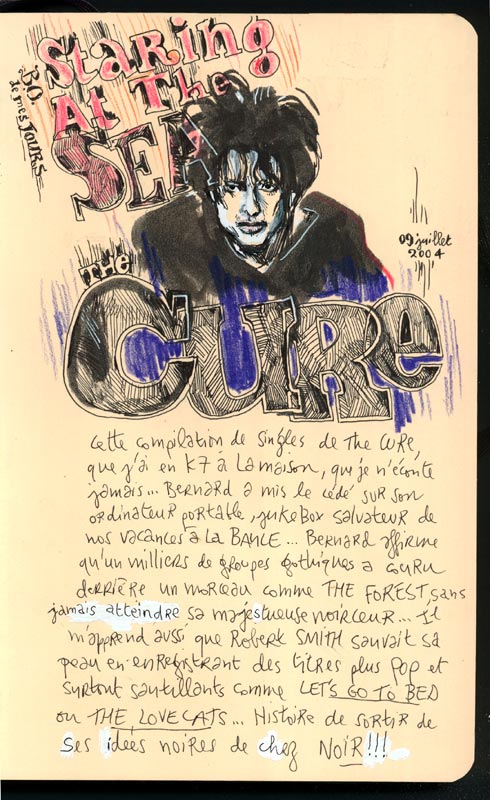 B.O.
de mes JOURS
Staring
At The
SEA
09 juillet
2004
THE
CURE
Cette compilation de singles de The CURE,
que j'ai en K7 à la maison, que je n'écoute
jamais... Bernard a mis le cédé sur son
ordinateur portable, jukebox salvateur de
nos vacances à La BAULE... Bernard affirme
qu'un milliers de groupes gothiques a couru
derrière un morceau comme THE FOREST, sans
jamais atteindre sa majestueuse noirceur... Il
m'apprend aussi que Robert SMITH sauvait sa
peau en enregistrant des titres plus pop et
surtout sautillants comme LET'S GO TO BED
ou THE LOVECATS... Histoire de sortir de
ses idées noires de chez NOIR!!!